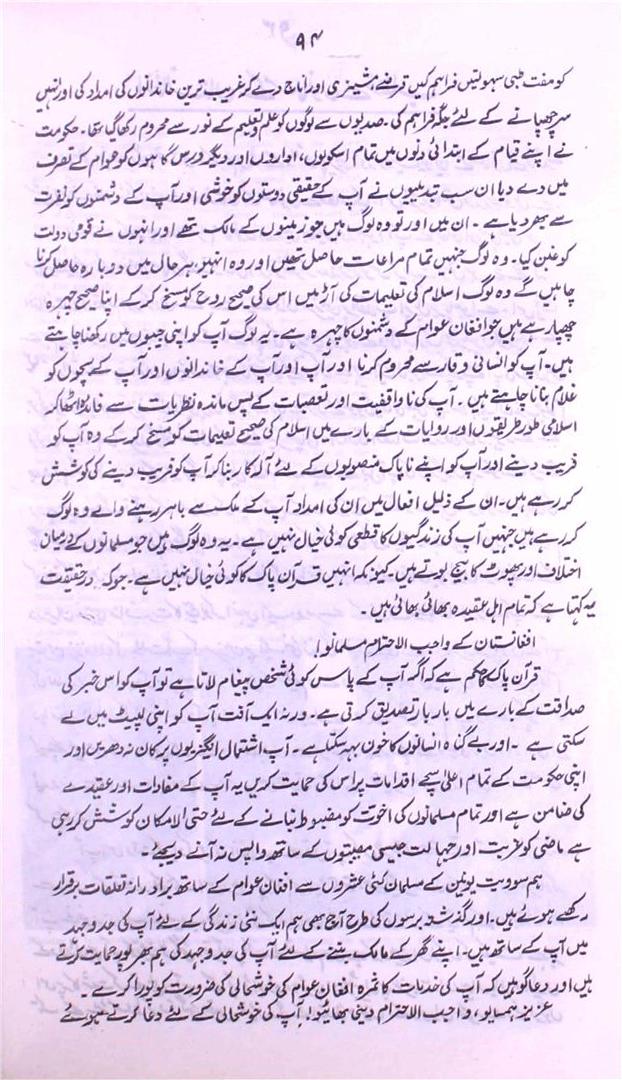 ۹۴
کو مفت طبی سہولتیں فراہم کیں قرضے، مشینری اور اناج دے کر غریب ترین خاندانوں کی امداد کی اور انہیں
سر چھپانے کے لئے جگہ فراہم کی۔ صدیوں سے لوگوں کو علم و تعلیم کے نور سے محروم رکھا گیا تھا۔ حکومت
نے اپنے قیام کے ابتدائی دنوں میں تمام اسکولوں، اداروں اور دیگر درس گاہوں کو عوام کے تصرف
میں دے دیا ان سب تبدیلیوں نے آپ کے حقیقی دوستوں کو خوشی اور آپ کے دشمنوں کو نفرت
سے بھر دیا ہے۔ ان میں اور تو وہ لوگ ہیں جو زمینوں کے مالک تھے اور انہوں نے قومی دولت
کو غبن کیا۔ وہ لوگ جنہیں تمام مراعات حاصل تھیں اور وہ انہیں ہر حال میں دوبارہ حاصل کرنا
چاہیں گے وہ لوگ اسلام کی تعلیمات کی آڑ میں اس کی صحیح روح کو مسخ کر کے اپنا صحیح چہرہ
چھپا رہے ہیں جو افغان عوام کے دشمنوں کا چہرہ ہے۔ یہ لوگ آپ کو اپنی جیبوں میں رکھنا چاہتے
ہیں۔ آپ کو انسانی وقار سے محروم کرنا اور آپ اور آپ کے خاندانوں اور آپ کے بچوں کو
غلام بنانا چاہتے ہیں۔ آپ کی ناواقفیت اور تعصبات کے پس ماندہ نظریات سے فائدہ اٹھا کر
اسلامی طور طریقوں اور روایات کے بارے میں اسلام کی صحیح تعلیمات کو مسخ کر کے وہ آپ کو
فریب دینے اور آپ کو اپنے ناپاک منصوبوں کے لئے آلہ کار بنا کر آپ کو فریب دینے کی کوشش
کر رہے ہیں۔ ان کے ذلیل افعال میں ان کی امداد آپ کے ملک سے باہر رہنے والے وہ لوگ
کر رہے ہیں جنہیں آپ کی زندگیوں کا قطعی کوئی خیال نہیں ہے۔ یہ وہ لوگ ہیں جو مسلمانوں کے درمیان
اختلاف اور پھوٹ کا بیج بوتے ہیں۔ کیونکہ انہیں قرآن پاک کا کوئی خیال نہیں ہے۔ جو کہ درحقیقت
یہ کہتا ہے کہ تمام اہل عقیدہ بھائی بھائی ہیں۔
افغانستان کے واجب الاحترام مسلمانو!
قرآن پاک کا حکم ہے کہ اگر آپ کے پاس کوئی شخص پیغام لاتا ہے تو آپ کو اس خبر کی
صداقت کے بارے میں بار بار تصدیق کرتی ہے۔ ورنہ ایک آفت آپ کو اپنی لپیٹ میں لے
سکتی ہے۔ اور بے گناہ انسانوں کا خون بہہ سکتا ہے۔ آپ اشتعال انگیزیوں پر کان نہ دھریں اور
اپنی حکومت کے تمام اعلیٰ سچے اقدامات پر اس کی حمایت کریں یہ آپ کے مفادات اور عقیدے
کی ضامن ہے اور تمام مسلمانوں کی اخوت کو مضبوط بنانے کے لئے حتی الامکان کوشش کر رہی
ہے ماضی کو غربت اور جہالت جیسی مصیبتوں کے ساتھ واپس نہ آنے دیجئے۔
ہم سوویت یونین کے مسلمان کئی عشروں سے افغان عوام کے ساتھ برادرانہ تعلقات برقرار
رکھے ہوئے ہیں۔ اور گذشتہ برسوں کی طرح آج بھی ہم ایک نئی زندگی کے لئے آپ کی جدوجہد
میں آپ کے ساتھ ہیں۔ اپنے گھر کے مالک بننے کے لئے آپ کی جدوجہد کی ہم بھرپور حمایت کرتے
ہیں اور دعا گو ہیں کہ آپ کی خدمات کا ثمرہ افغان عوام کی خوشحالی کی ضرورت کو پورا کرے۔
عزیز ہمسایو، واجب الاحترام دینی بھائیو! آپ کی خوشحالی کے لئے دعا کرتے ہوئے